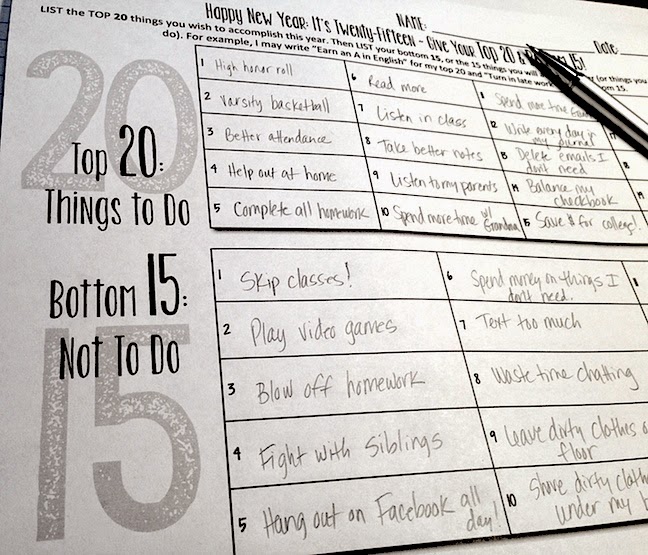 Happy New Year: It's Twenty-Fifteen - Give Your Top 20 & 15!
NAME:
Date:
LIST the TOP 20 things you wish to accomplish this year. Then LIST your bottom 15, or the 15 things you will (or things you
do). For example, I may write "Earn an A in English" for my top 20 and "Turn in late work 15.
20
Top 20:
Things to Do
1 High honor roll
2 Varsity basketball
3 Better attendance
4 Help out at home
5 Complete all homework
6 Read more
7 Listen in class
8 Take better notes
9 Listen to my parents
10 Spend more time w/
Grandma
Spend more time
12 Write every day in
my journal
13 Delete emails I
don't need
14 Balance my
checkbook
15 Save $ for college!
17
18
19
15
Bottom 15:
Not To Do
1 Skip classes!
2 Play video games
3 Blow off homework
4 Fight with siblings
5 Hang out on Facebook all
day!
6 Spend money on things I
don't need.
7 Text too much
8 Waste time chatting
9 Leave dirty clothes
floor
10 Shove dirty
under my